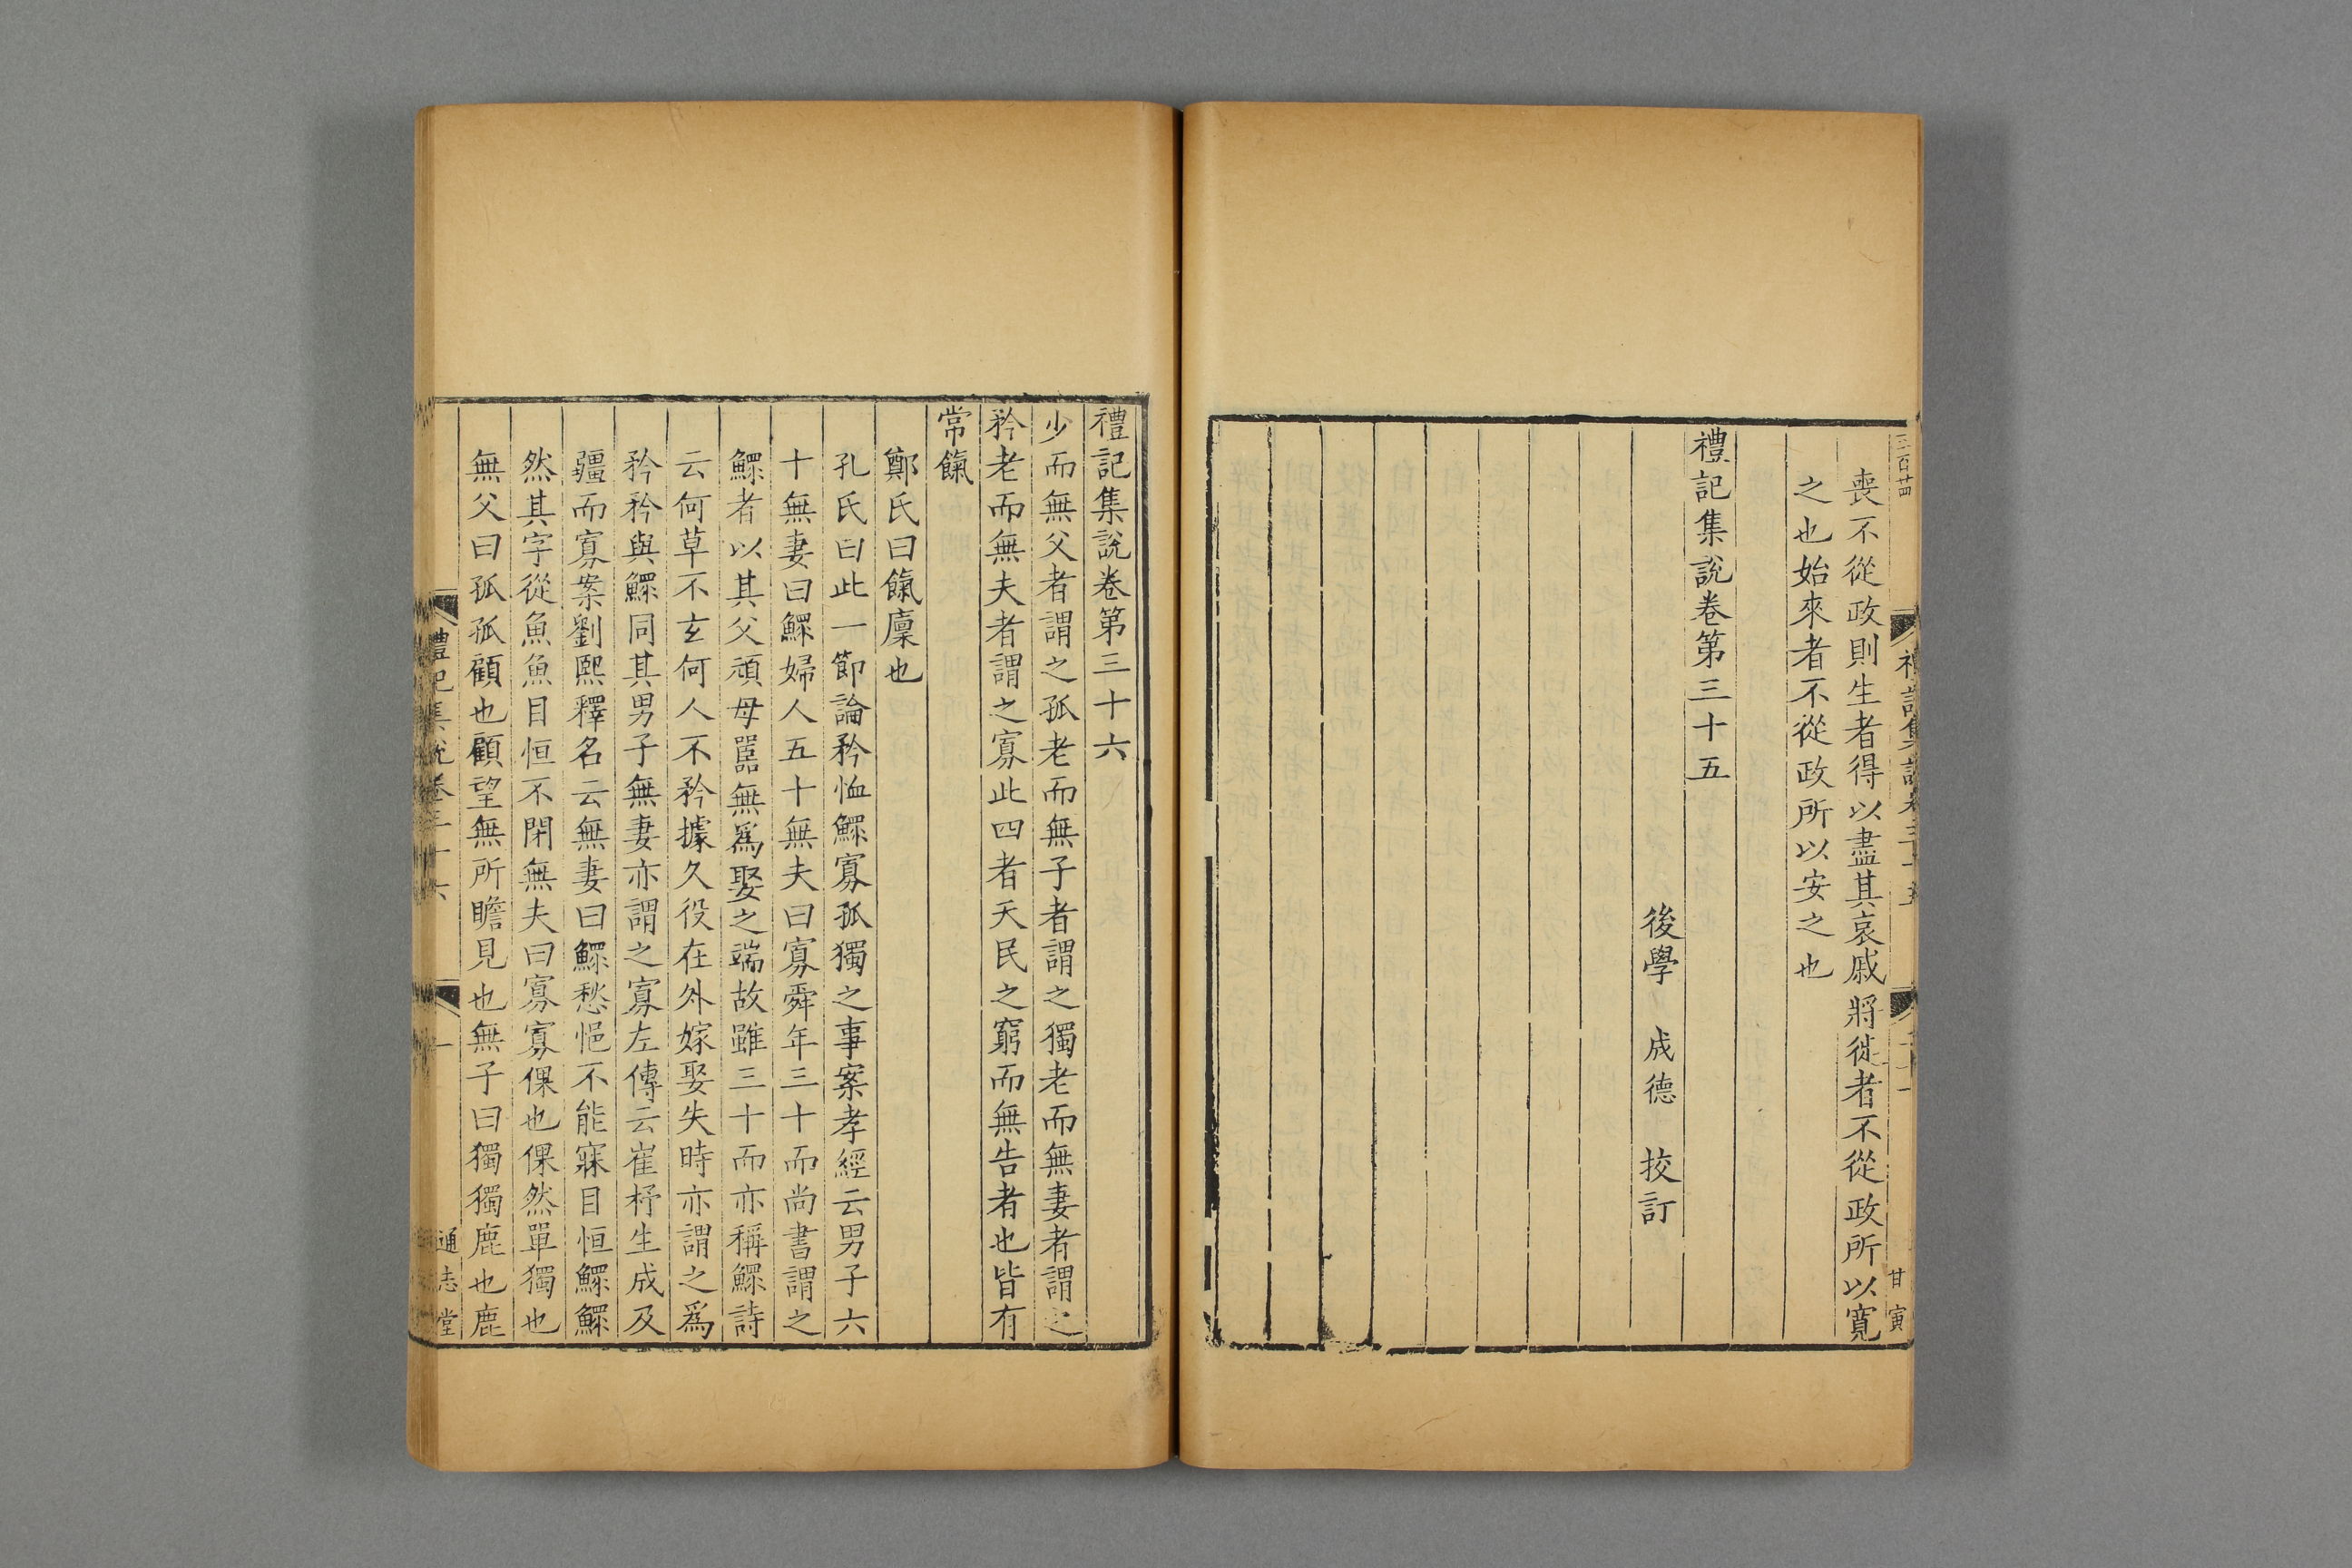 三百廿四
喪不從政則生者得以盡其哀戚將徙者不從政所以寬
之也始來者不從政所以安之也
禮記集說卷第三十五
後學 成德 挍訂
甘寅
禮記集說卷第三十六
少而無父者謂之孤老而無子者謂之獨老而無妻者謂之
矜老而無夫者謂之寡此四者天民之窮而無告者也皆有
常餼
鄭氏曰餼廩也
孔氏曰此一節論矜恤鰥寡孤獨之事案孝經云男子六
十無妻曰鰥婦人五十無夫曰寡舜年三十而尚書謂之
鰥者以其父頑母嚚無爲娶之端故雖三十而亦稱鰥詩
云何草不玄何人不矜據久役在外嫁娶失時亦謂之爲
矜矜與鰥同其男子無妻亦謂之寡左傳云崔杼生成及
疆而寡案劉熙釋名云無妻曰鰥愁悒不能寐目恒鰥鰥
然其字從魚魚目恒不閉無夫曰寡寡倮也倮然單獨也
無父曰孤孤顧也顧望無所瞻見也無子曰獨獨鹿也鹿
禮記集說卷三十六 一 通志堂